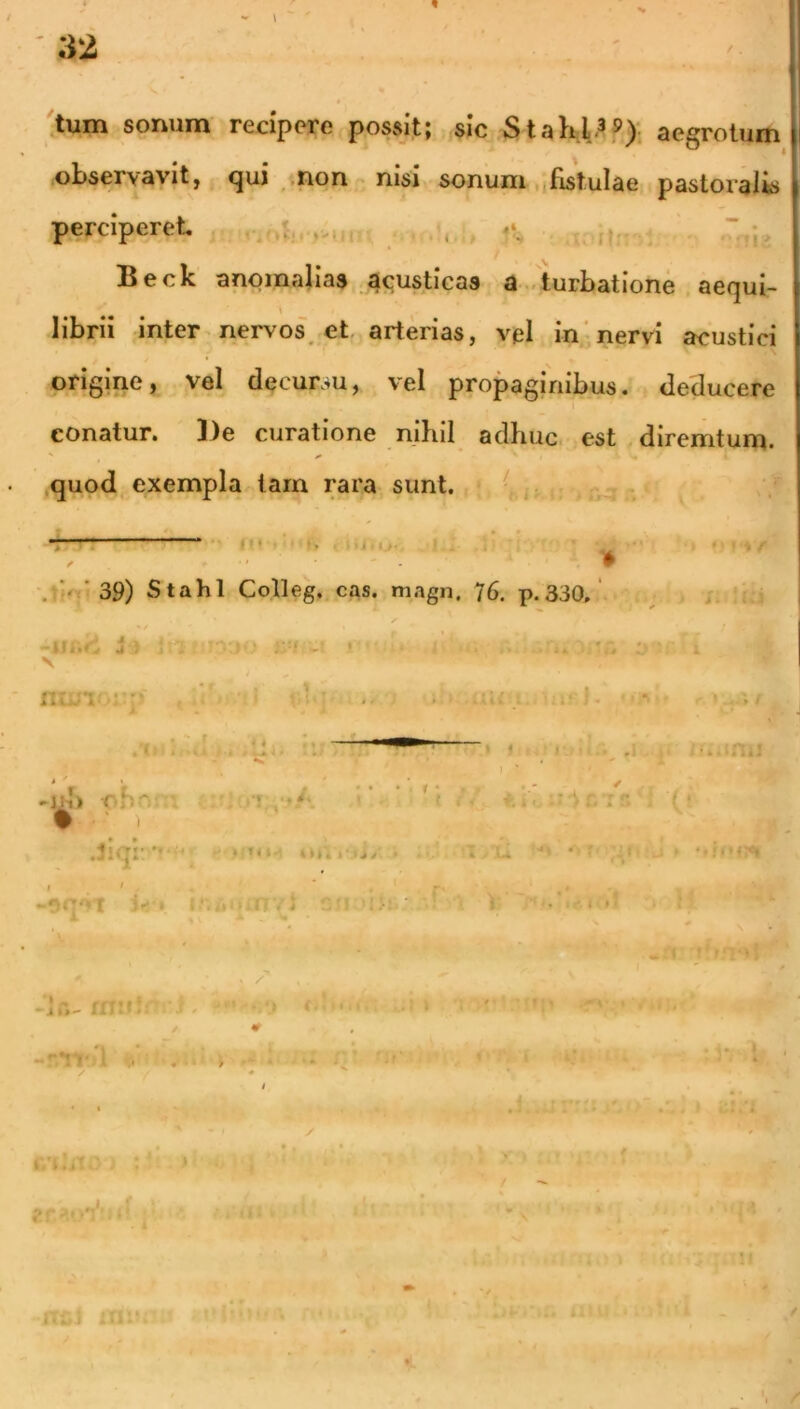 32
tum sonum recipere possit; sic Stahl³⁹) aegrotum
observavit, qui non nisi sonum fistulae pastoralis
perciperet.
Beck anomalias acusticas a turbatione aequi-
librii inter nervos et arterias, vel in nervi acustici
origine, vel decursu, vel propaginibus. deducere
conatur. De curatione nihil adhuc est diremtum.
quod exempla tam rara sunt.
39) Stahl Colleg. cas. magn. 76. p. 330.